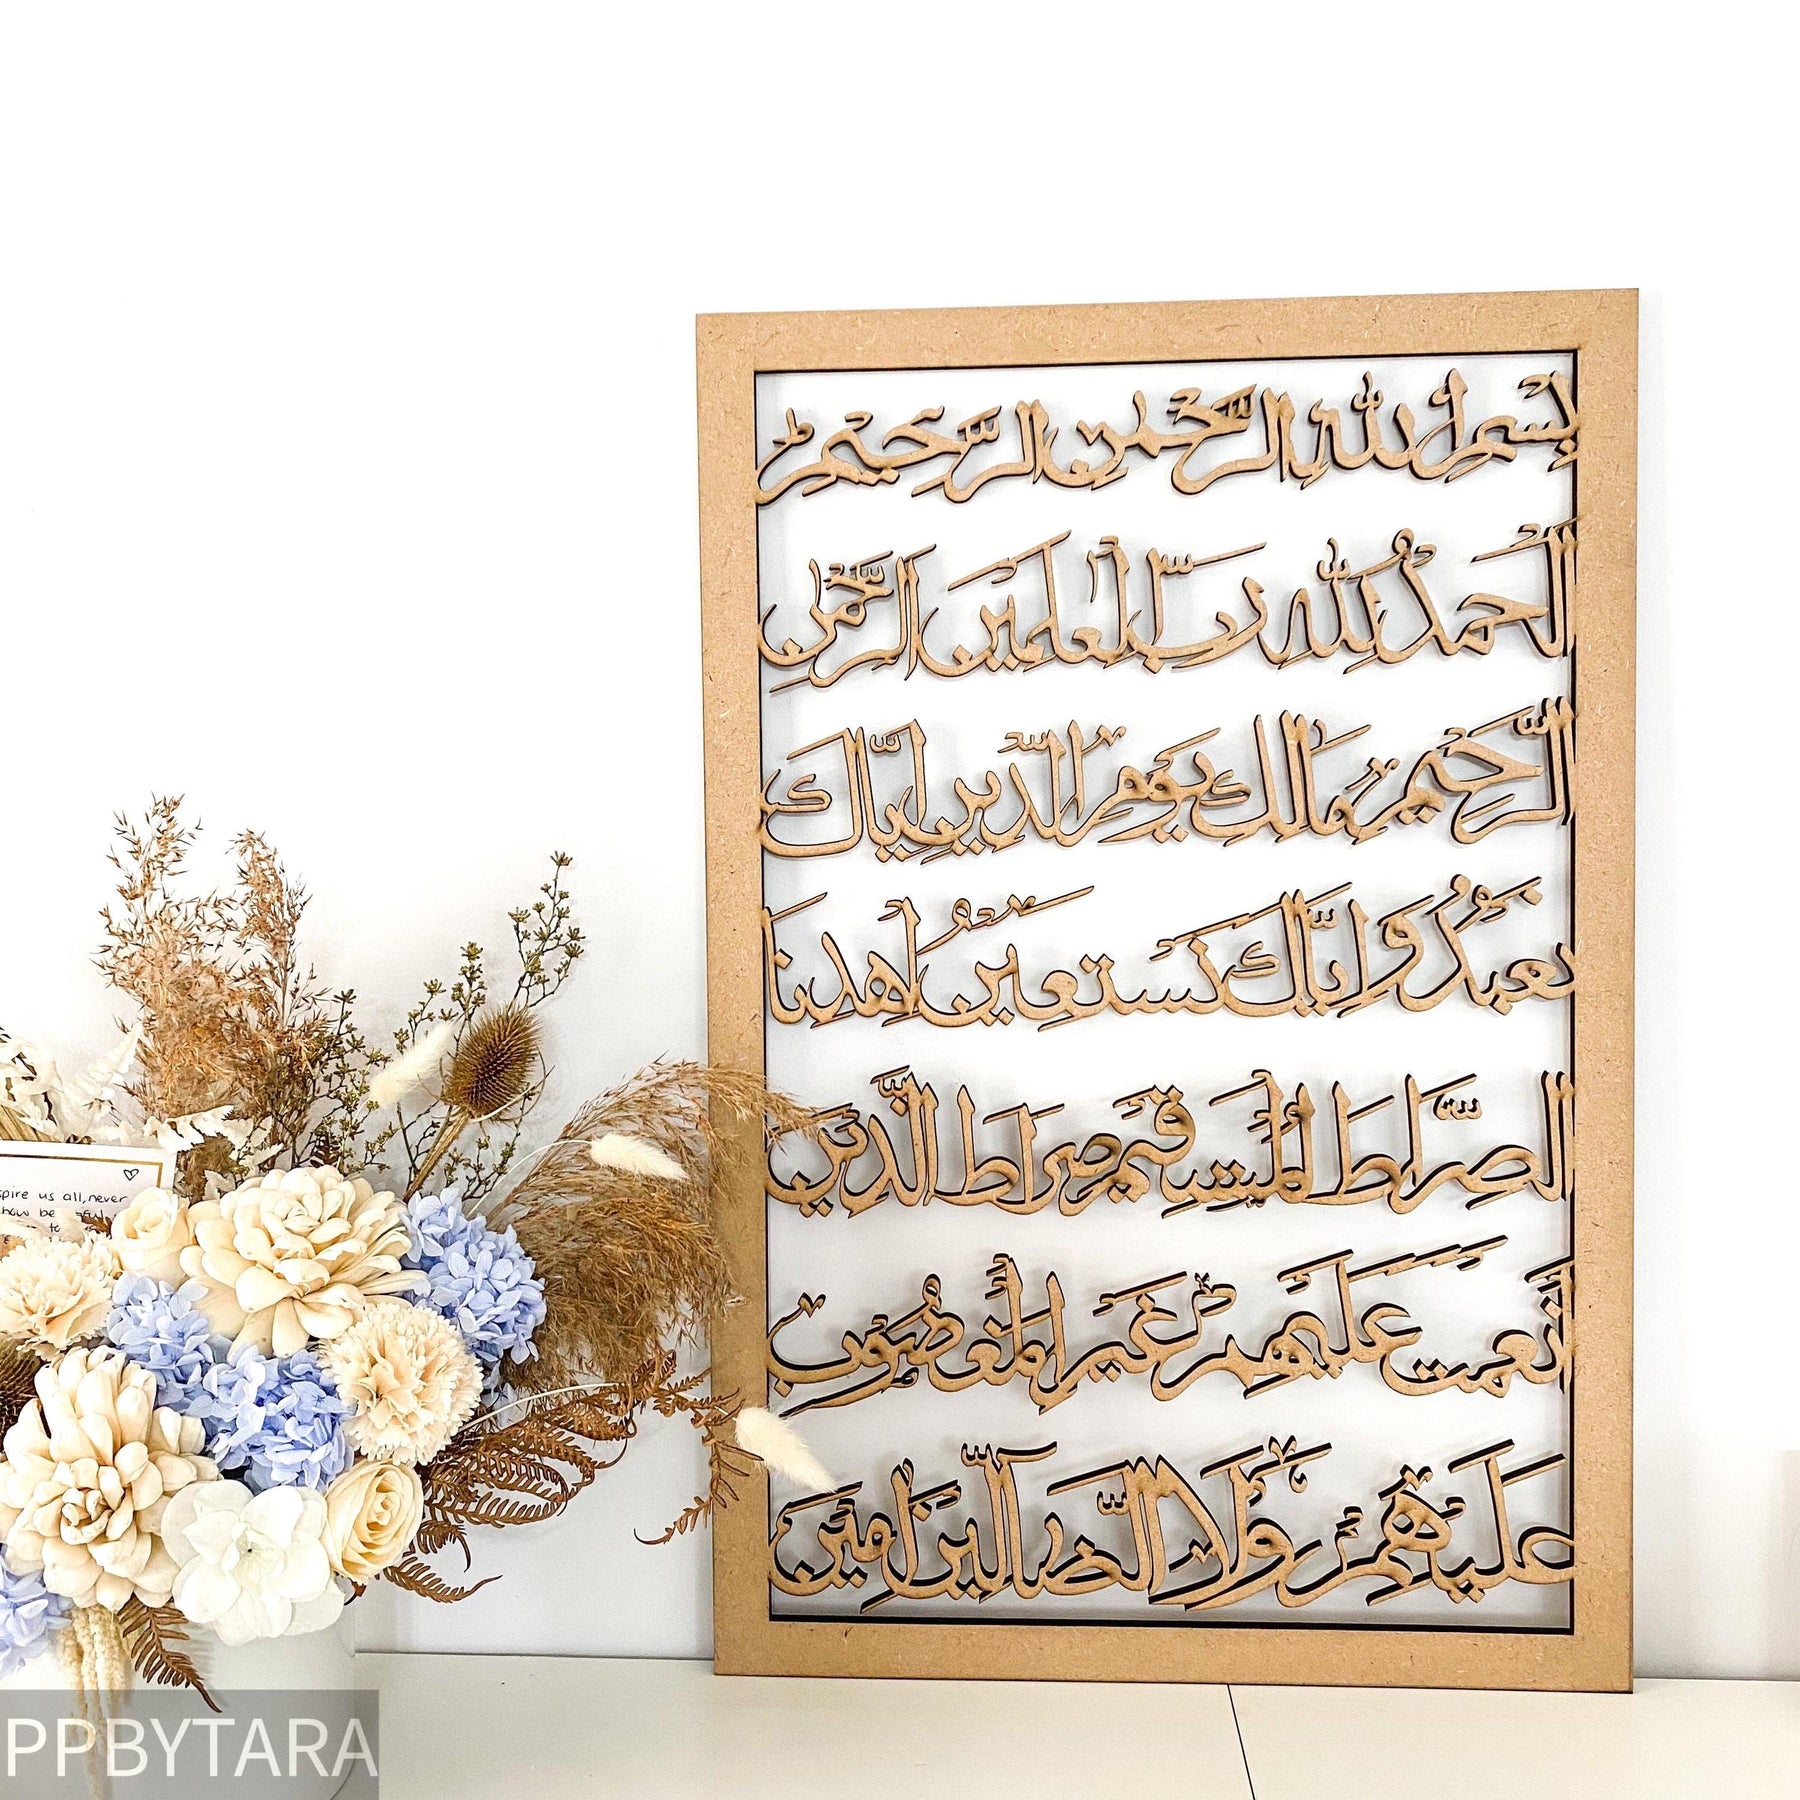 بِسْمِ اللهِ الرَّحْمٰنِ الرَّحِيْمِ
اَلْحَمْدُ لِلّٰهِ رَبِّ الْعٰلَمِيْنَ الرَّحْمٰنِ
الرَّحِيْمِ مَالِكِ يَوْمِ الدِّيْنِ اِيَّاكَ
نَعْبُدُ وَاِيَّاكَ نَسْتَعِيْنُ اِهْدِنَا
الصِّرَاطَ الْمُسْتَقِيْمَ صِرَاطَ الَّذِيْنَ
اَنْعَمْتَ عَلَيْهِمْ غَيْرِ الْمَغْضُوْبِ
عَلَيْهِمْ وَلَا الضَّآلِّيْنَ اٰمِيْنَ
spire us all, never
how be
to
PPBYTARA